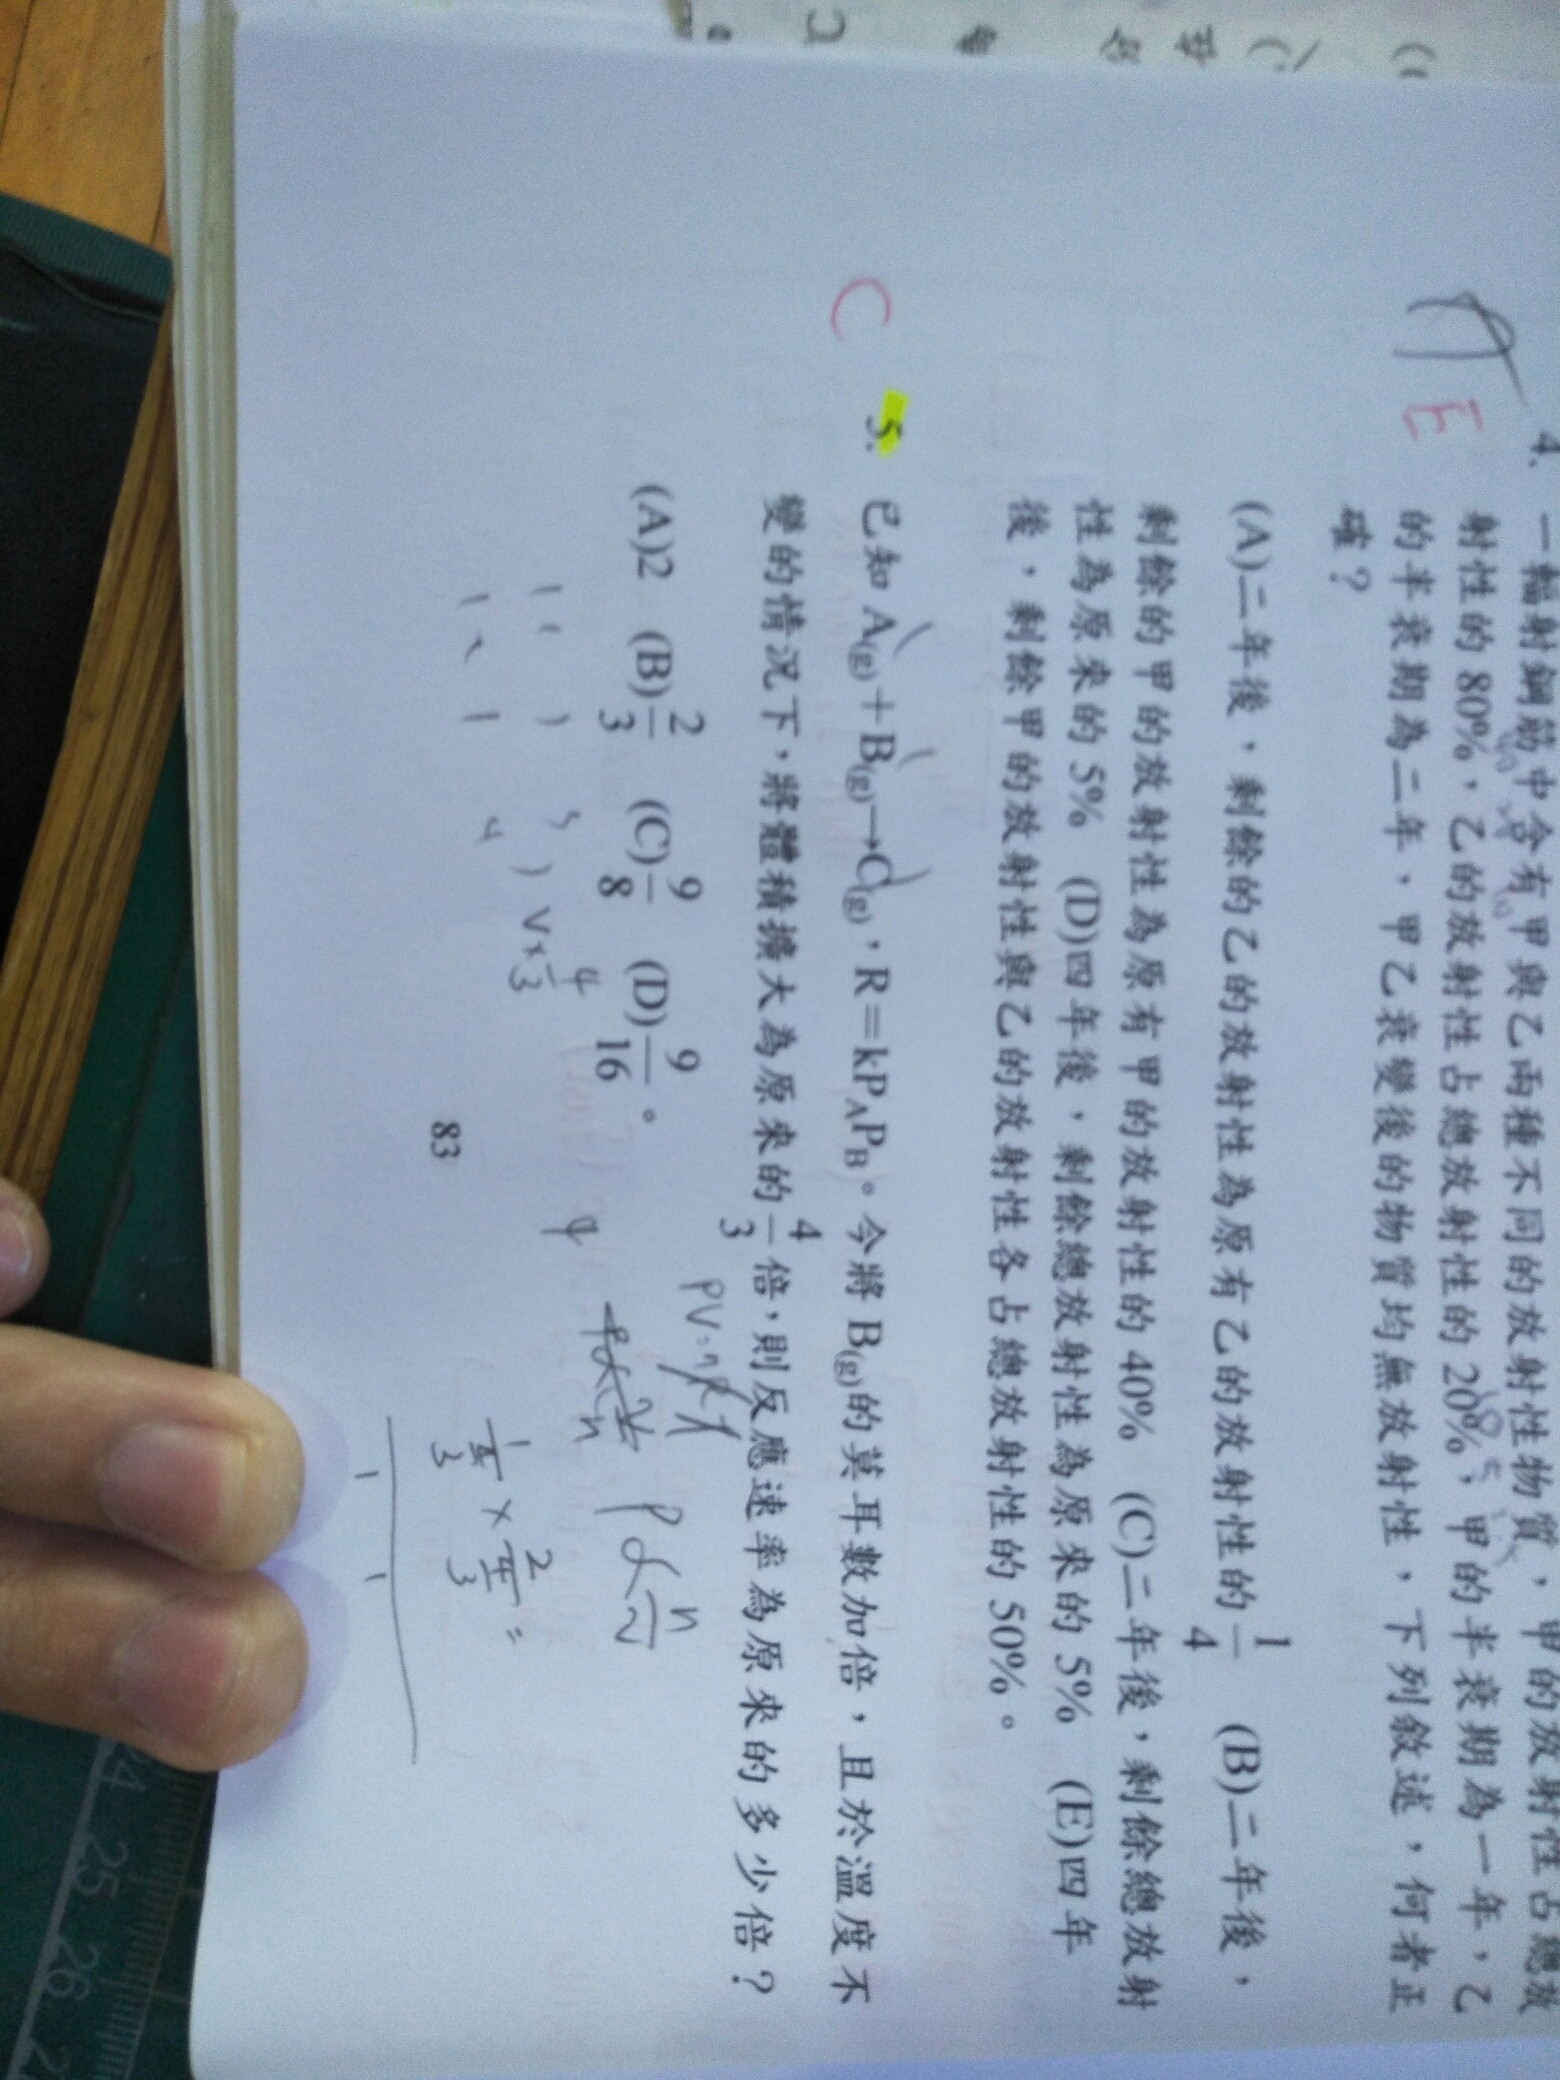 E
4. 一輻射鋼筋中含有甲與乙兩種不同的放射性物質，甲的放射性占總放
射性的 80%，乙的放射性占總放射性的 20%，甲的半衰期為一年，乙
的半衰期為二年，甲乙衰變後的物質均無放射性，下列敘述，何者正
確？
(A)二年後，剩餘的乙的放射性為原有乙的放射性的 1/4 (B)二年後，
剩餘的甲的放射性為原有甲的放射性的 40% (C)二年後，剩餘總放射
性為原來的 5% (D)四年後，剩餘總放射性為原來的 5% (E)四年
後，剩餘甲的放射性與乙的放射性各占總放射性的 50%。
C
5. 已知 A(g)＋B(g)→C(g)，R＝kPAPB。今將 B(g)的莫耳數加倍，且於溫度不
變的情況下，將體積擴大為原來的 4/3 倍，則反應速率為原來的多少倍？
(A)2 (B)2/3 (C)9/8 (D)9/16。
PV=nRT
P α n/V
V× 4/3
83
24 25 26